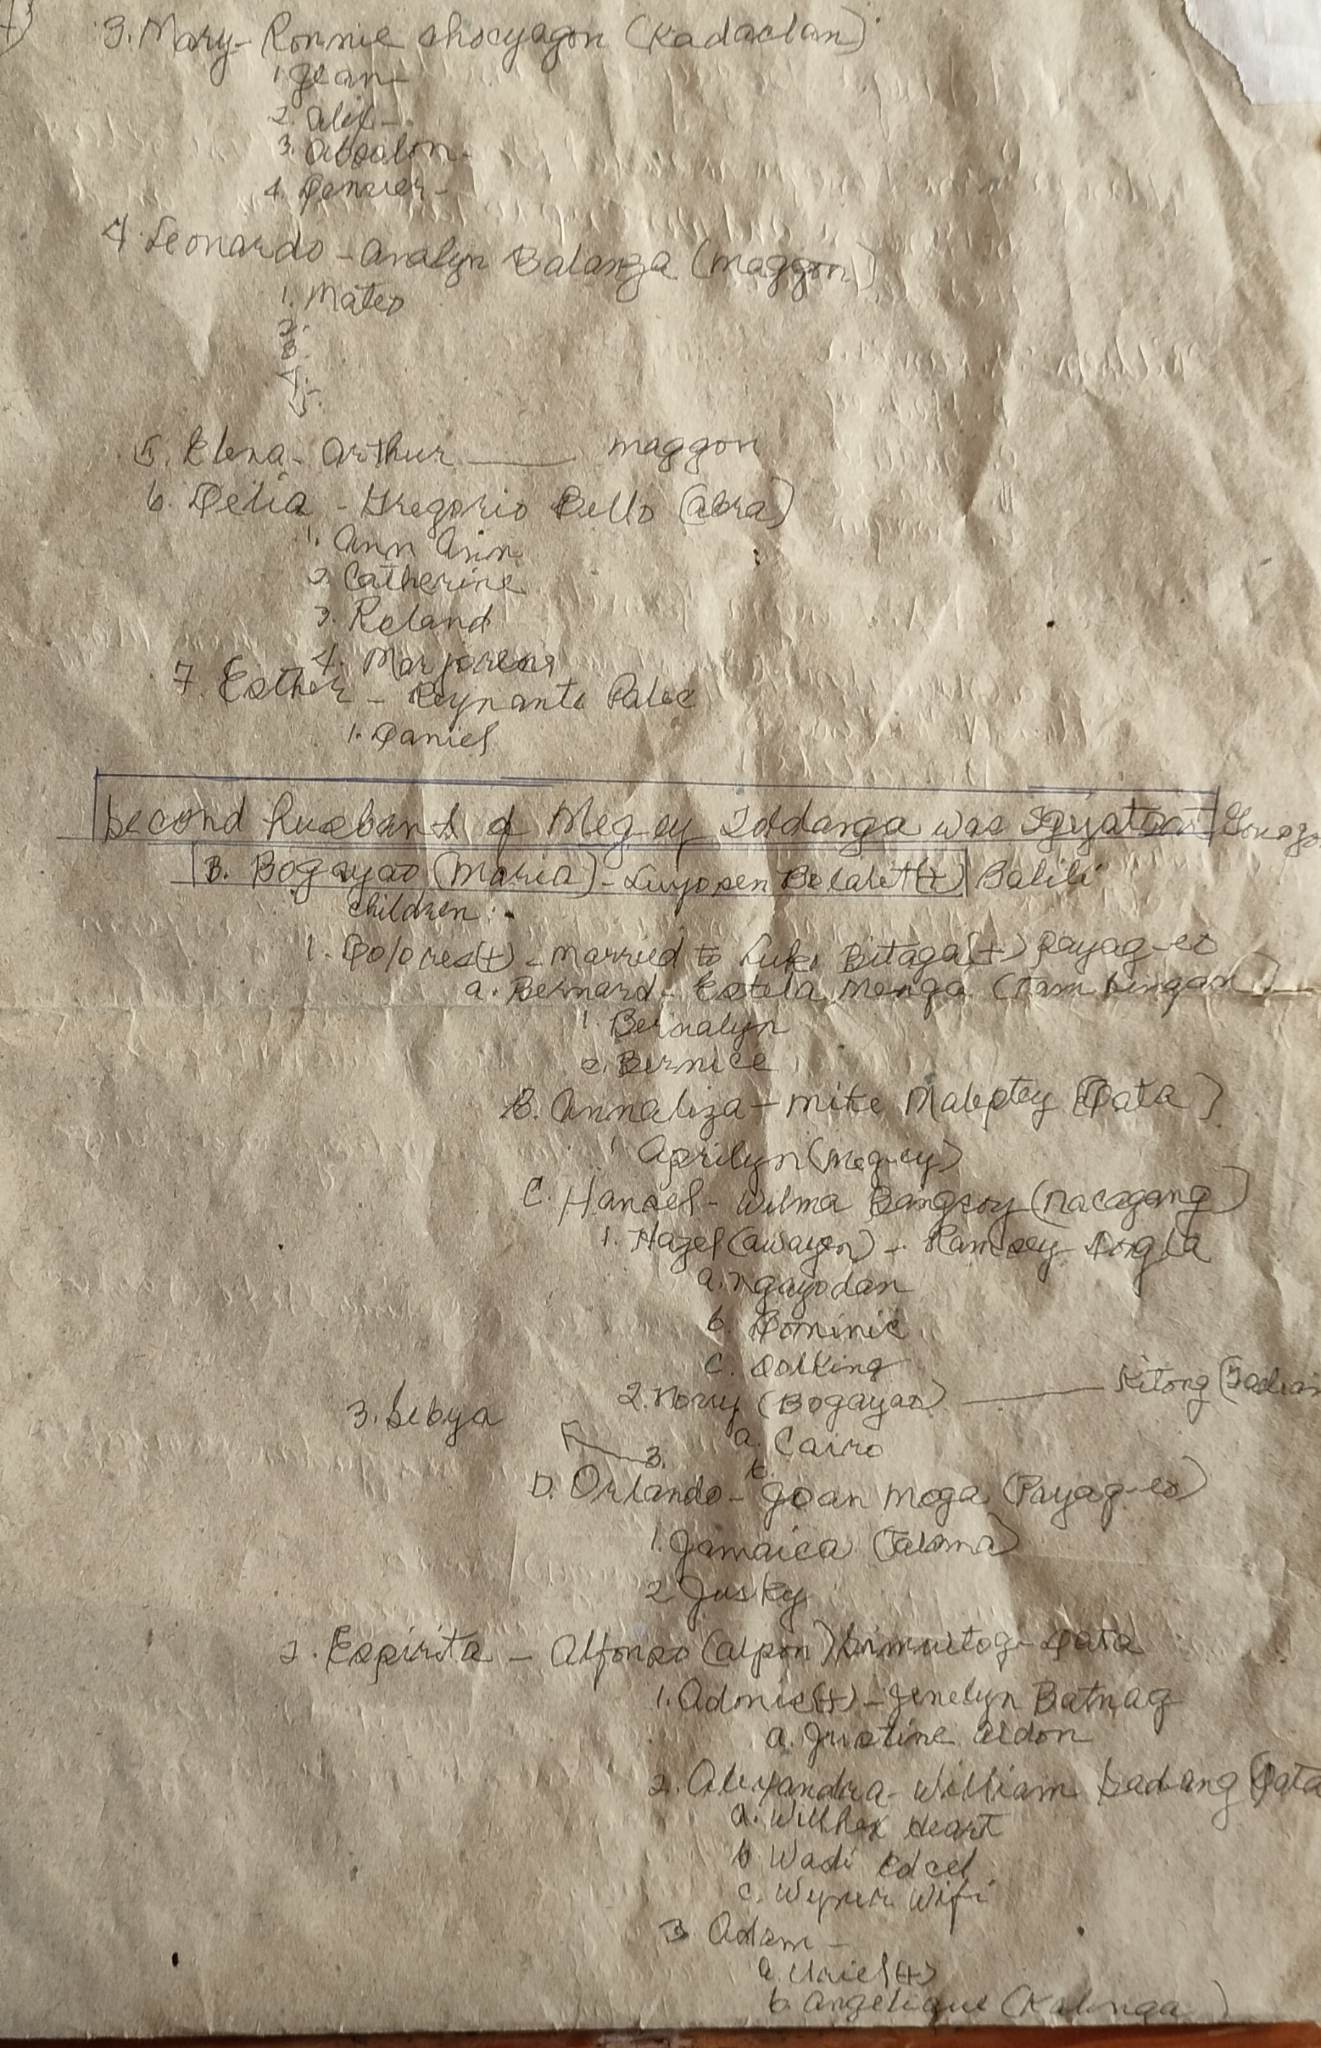 3. Mary - Ronnie Chocyagon (Kadaclan)
1. Jean -
2. Alex -
3. Absalon -
4. Denver -
4. Leonardo - Analyn Balanza (Maggon)
1. Mateo
2.
3.
4.
5.
5. Elena - Arthur ____ maggon
6. Delia - Gregorio Bello (Abra)
1. Ann Ann
2. Catherine
3. Roland
4.
7. Esther - Reynante Palec
1. Daniel
Second husband of Meg-ey Toldanga was
B. Bogayao (Maria) - Luyopen Belaket (+) Balili
children:
1. Dolores (+) - married to Luke Bitaga (+) Payag-eo
a. Bernard - Estela Menga (Tambingan)
1. Bernalyn
2. Bernice
B. Annaliza - Mike Maleptey (Data)
1 Aprilyn (Meg-ey)
C. Hansel - Wilma Bangsoy (Nacagang)
1. Hazel (Awayen) - Ramsey Dongla
a. Ngayodan
b. Dominic
c. Dolking
2. Novy (Bogayao) ____ Kitong (Tadian
3. Sebya
a. Cairo
3.
b.
D. Orlando - Joan Moga (Payag-eo)
1. Jamaica (Takma)
2. Jusky
2. Espirita - Alfonso (Alpon) Data
1. Adonis (+) - Jenelyn Batnag
a. Justine Aldon
2. Alexandra - William Sadang (Data
a. Willhex Heart
b Wadi Edcel
c. Wifi
3 Adam -
a. Uriel (+)
b. Angelique (Kalinga)